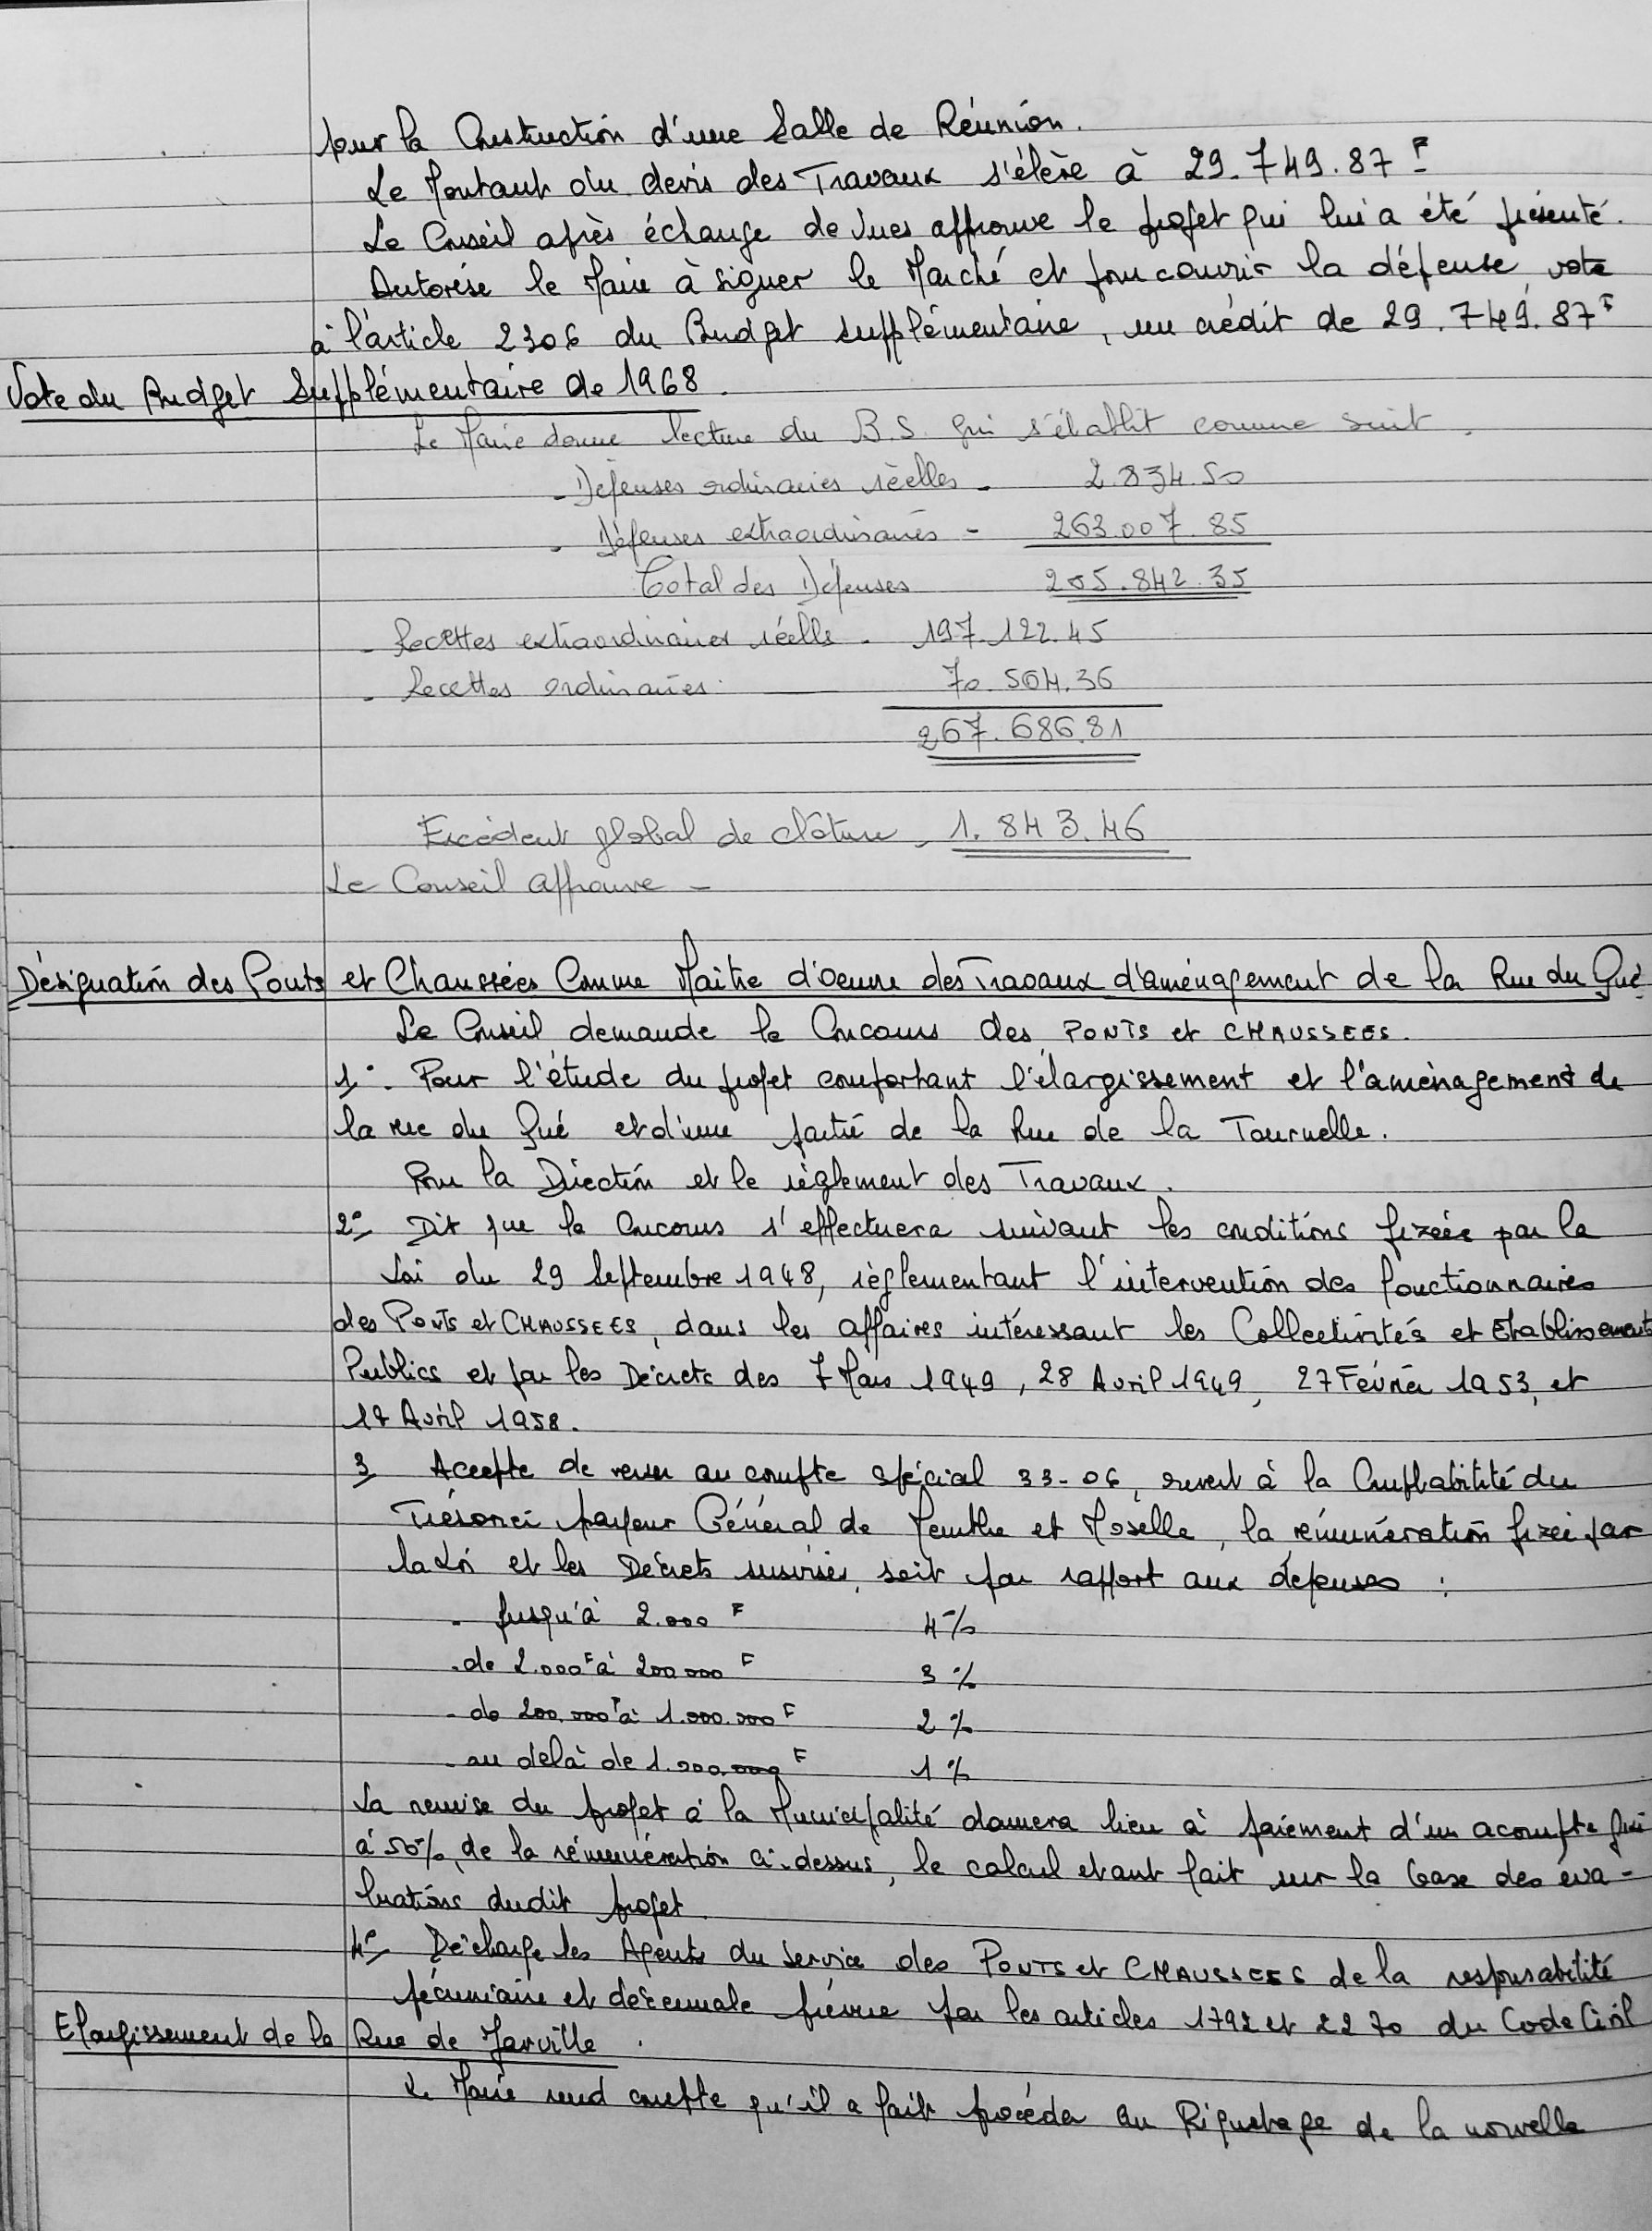 pour la Construction d'une Salle de Réunion.
Le Montant du devis des Travaux s'élève à 29.749.87 F
Le Conseil après échange de vues approuve le projet qui lui a été présenté.
Autorise le Maire à signer le Marché et pour couvrir la dépense, vote
à l'article 2306 du Budget supplémentaire, un crédit de 29.749.87 F
Vote du Budget Supplémentaire de 1968.
Le Maire donne lecture du B.S. qui s'établit comme suit.
- Dépenses ordinaires réelles - 2.834.50
- Dépenses extraordinaires - 263.007.85
Total des Dépenses 265.842.35
- Recettes extraordinaires réelle - 197.122.45
- Recettes ordinaires. 70.564.36
267.686.81
Excédent global de clôture, 1.843.46
Le Conseil approuve -
Désignation des Ponts et Chaussées Comme Maître d'oeuvre des Travaux d'aménagement de la Rue du Gué
Le Conseil demande le Concours des PONTS et CHAUSSEES.
1°. Pour l'étude du projet comportant l'élargissement et l'aménagement de
la rue du Gué et d'une partie de la Rue de la Tournelle.
Pour la Direction et le règlement des Travaux.
2°- Dit que le Concours s'effectuera suivant les conditions fixées par la
Loi du 29 Septembre 1948, règlementant l'intervention des fonctionnaires
des PONTS et CHAUSSEES, dans les affaires intéressant les Collectivités et Etablissements
Publics et par les Décrets des 7 Mars 1949, 28 Avril 1949, 27 Février 1953, et
17 Avril 1958.
3- Accepte de verser au compte spécial 33-06, ouvert à la Comptabilité du
Trésorier payeur Général de Meurthe et Moselle, la rémunération fixée par
la Loi et les Décrets susvisés, soit par rapport aux dépenses :
- jusqu'à 2.000 F 4%
- de 2.000 F à 200 000 F 3 %
- de 200.000 F à 1.000.000 F 2 %
- au delà de 1.000.000 F 1 %
La remise du projet à la Municipalité donnera lieu à paiement d'un acompte fixé
à 50%, de la rémunération ci-dessus, le calcul etant fait sur la base des éva-
luations dudit projet.
4°- Décharge les Agents du Service des PONTS et CHAUSSEES de la responsabilité
pécuniaire et décennale prévue par les articles 1792 et 2270 du Code Civil
Elargissement de la Rue de Jarville.
Le Maire rend compte qu'il a fait procéder au Piquetage de la nouvelle